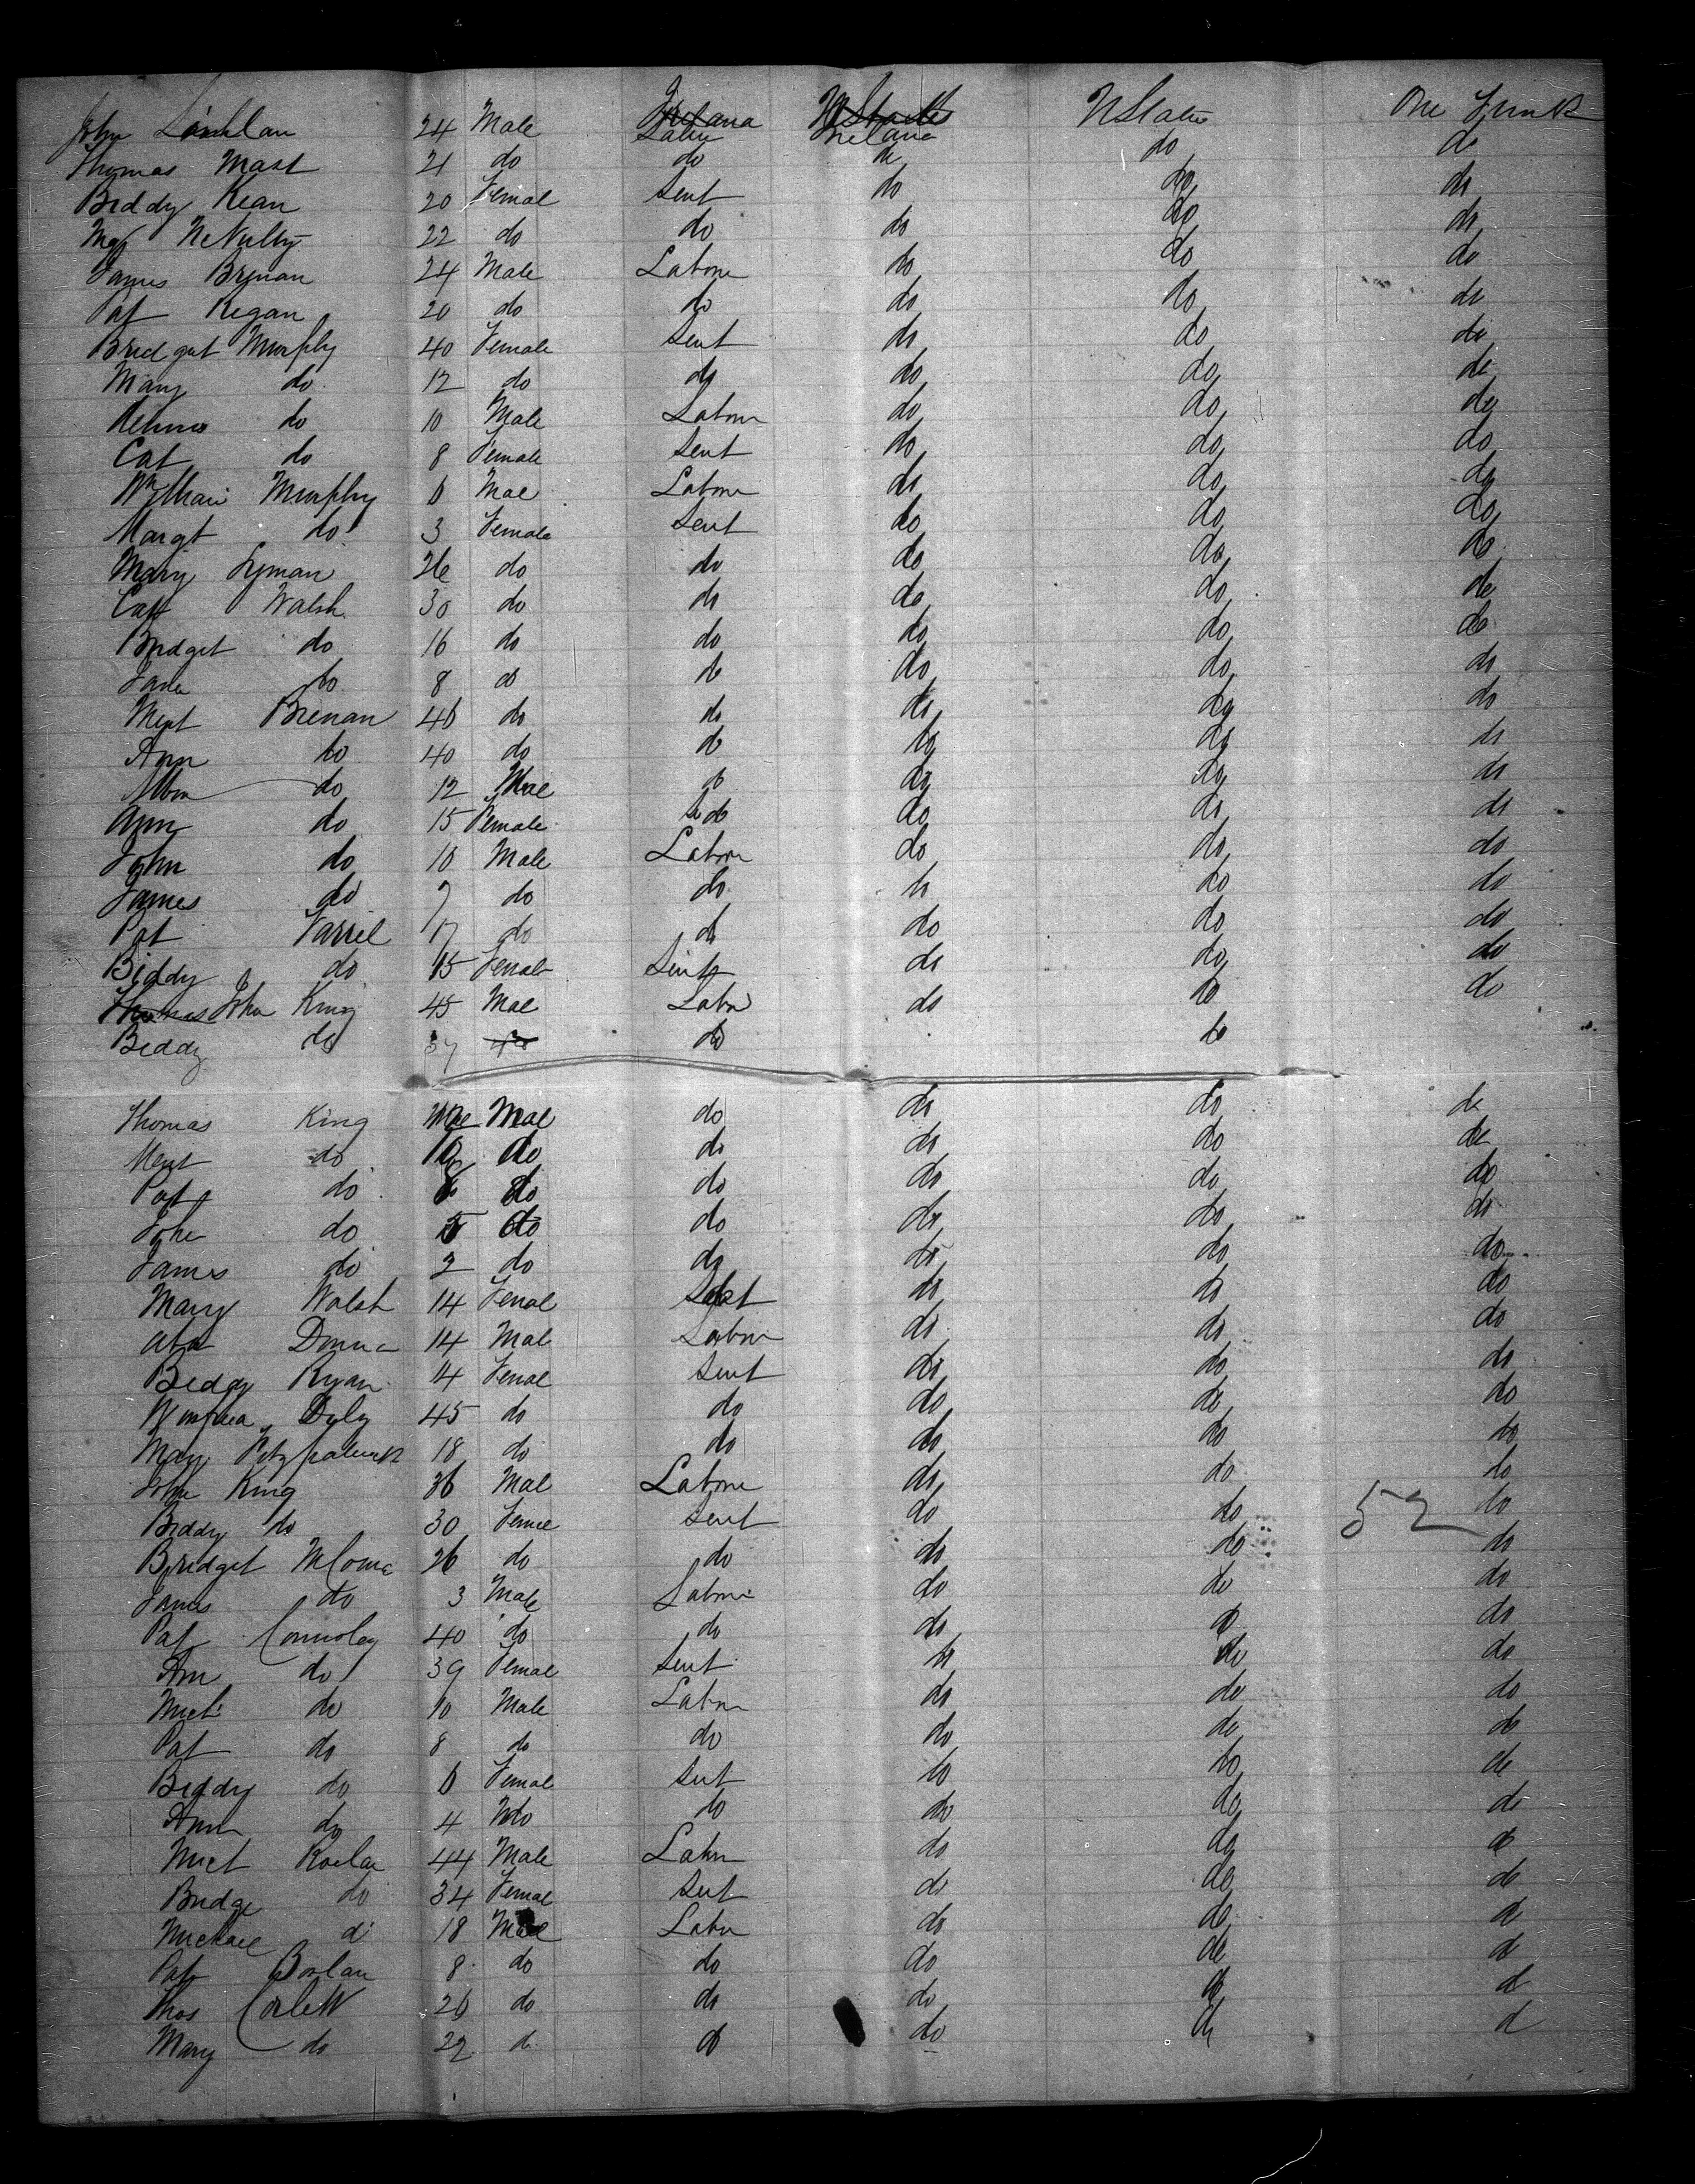 John 24 Male Labor Ireland UStates One Trunk
Thomas Mast 21 do do do do do
Biddy Kean 20 Femal Sent do do do
McNulty 22 do do do do do
James Brenan 24 Male Labor do do do
Pat Regan 20 do do do do do
Bridget Murphy 40 Female Sent do do do
Mary do 12 do do do do do
do 10 Male Labor do do do
Cat do 8 Female Sent do do do
William Murphy 6 Mal Labor do do do
Margt do 3 Female Sent do do do
Mary 26 do do do do do
Cat Walsh 30 do do do do do
Bridget do 16 do do do do do
Jane do 8 do do do do do
Brenan 46 do do do do do
Ann do 40 do do do do do
do 12 Male do do do do
Ann do 15 Female do do do do
John do 10 Male Labor do do do
James do 7 do do do do do
Pat Farrel 17 do do do do do
Biddy do 15 Female Sent do do do
John King 45 Male Labor do do do
Biddy do 37 do do
Thomas King Male do do do do
do 10 do do do do do
Pat do 8 do do do do do
John do 5 do do do do do
James do 2 do do do do do
Mary Walsh 14 Femal do do do
14 Male Labor do do do
Biddy Ryan 14 Femal Sent do do do
45 do do do do do
Mary Fitzpatrick 18 do do do do do
John King 36 Male Labor do do do
Biddy do 30 Female Sent do do 52 do
Bridget 26 do do do do do
James do 3 Male Labor do do do
Pat Connoley 40 do do do do do
Ann do 39 Female Sent do do do
Mict do 10 Male Labor do do do
Pat do 8 do do do do do
Biddy do 6 Femal Sent do do do
Ann do 4 do do do do do
Mict 44 Male Labor do do do
Bridge do 34 Femal Sent do do do
Michael do 18 Male Labor do do do
Pat 8 do do do do do
Thos Corlett 26 do do do do do
Mary do 22 do do do do do